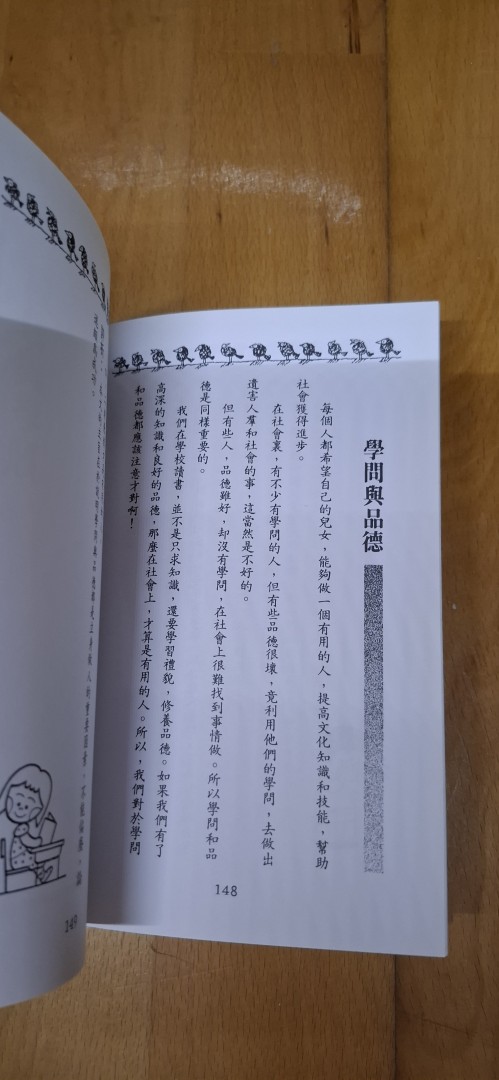 學問與品德
每個人都希望自己的兒女，能夠做一個有用的人，提高文化知識和技能，幫助
社會獲得進步。
在社會裏，有不少有學問的人，但有些品德很壞，竟利用他們的學問，去做出
遺害人羣和社會的事，這當然是不好的。
但有些人，品德雖好，却沒有學問，在社會上很難找到事情做。所以學問和品
德是同樣重要的。
我們在學校請書，並不是只求知識，還要學習禮貌，修養品德。如果我們有了
高深的知識和良好的品德，那麼在社會上，才算是有用的人。所以，我們對於學問
和品德都應該注意才對啊！
148
149